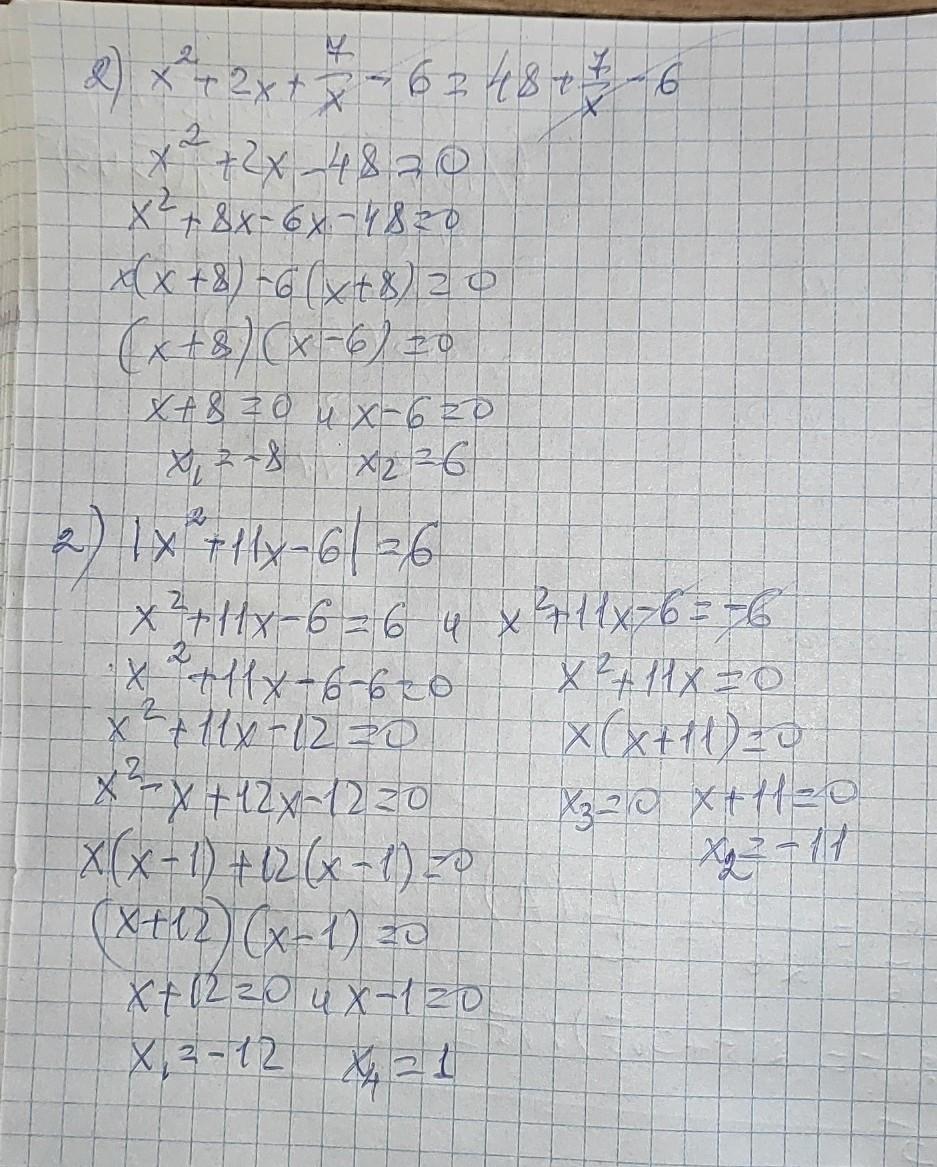 2) x² + 2x + 7/x - 6 = 48 + 7/x - 6
x² + 2x - 48 = 0
x² + 8x - 6x - 48 = 0
x(x + 8) - 6(x + 8) = 0
(x + 8)(x - 6) = 0
x + 8 = 0 и x - 6 = 0
x₁ = -8 x₂ = 6
2) |x² + 11x - 6| = 6
x² + 11x - 6 = 6 и x² + 11x - 6 = -6
x² + 11x - 6 - 6 = 0 x² + 11x = 0
x² + 11x - 12 = 0 x(x + 11) = 0
x² - x + 12x - 12 = 0 x₃ = 0 x + 11 = 0
x₂ = -11
x(x - 1) + 12(x - 1) = 0
(x + 12)(x - 1) = 0
x + 12 = 0 и x - 1 = 0
x₁ = -12 x₄ = 1